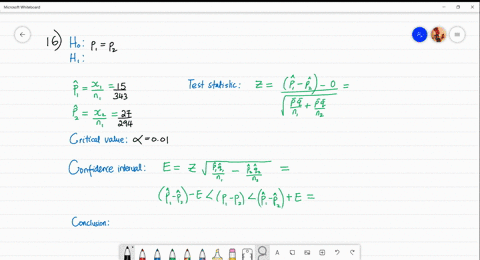 Microsoft Whiteboard
16) H₀: p₁ = p₂
H₁:
p̂₁ = x₁/n₁ = 15/343
Test statistic: z = ((p̂₁ - p̂₂) - 0)/√(p̄q̄/n₁ + p̄q̄/n₂) =
p̂₂ = x₂/n₂ = 27/294
Critical value: α = 0.01
Confidence interval: E = z √(p̂₁q̂₁/n₁ - p̂₂q̂₂/n₂) =
(p̂₁ - p̂₂) - E < (p₁ - p₂) < (p̂₁ - p̂₂) + E =
Conclusion: